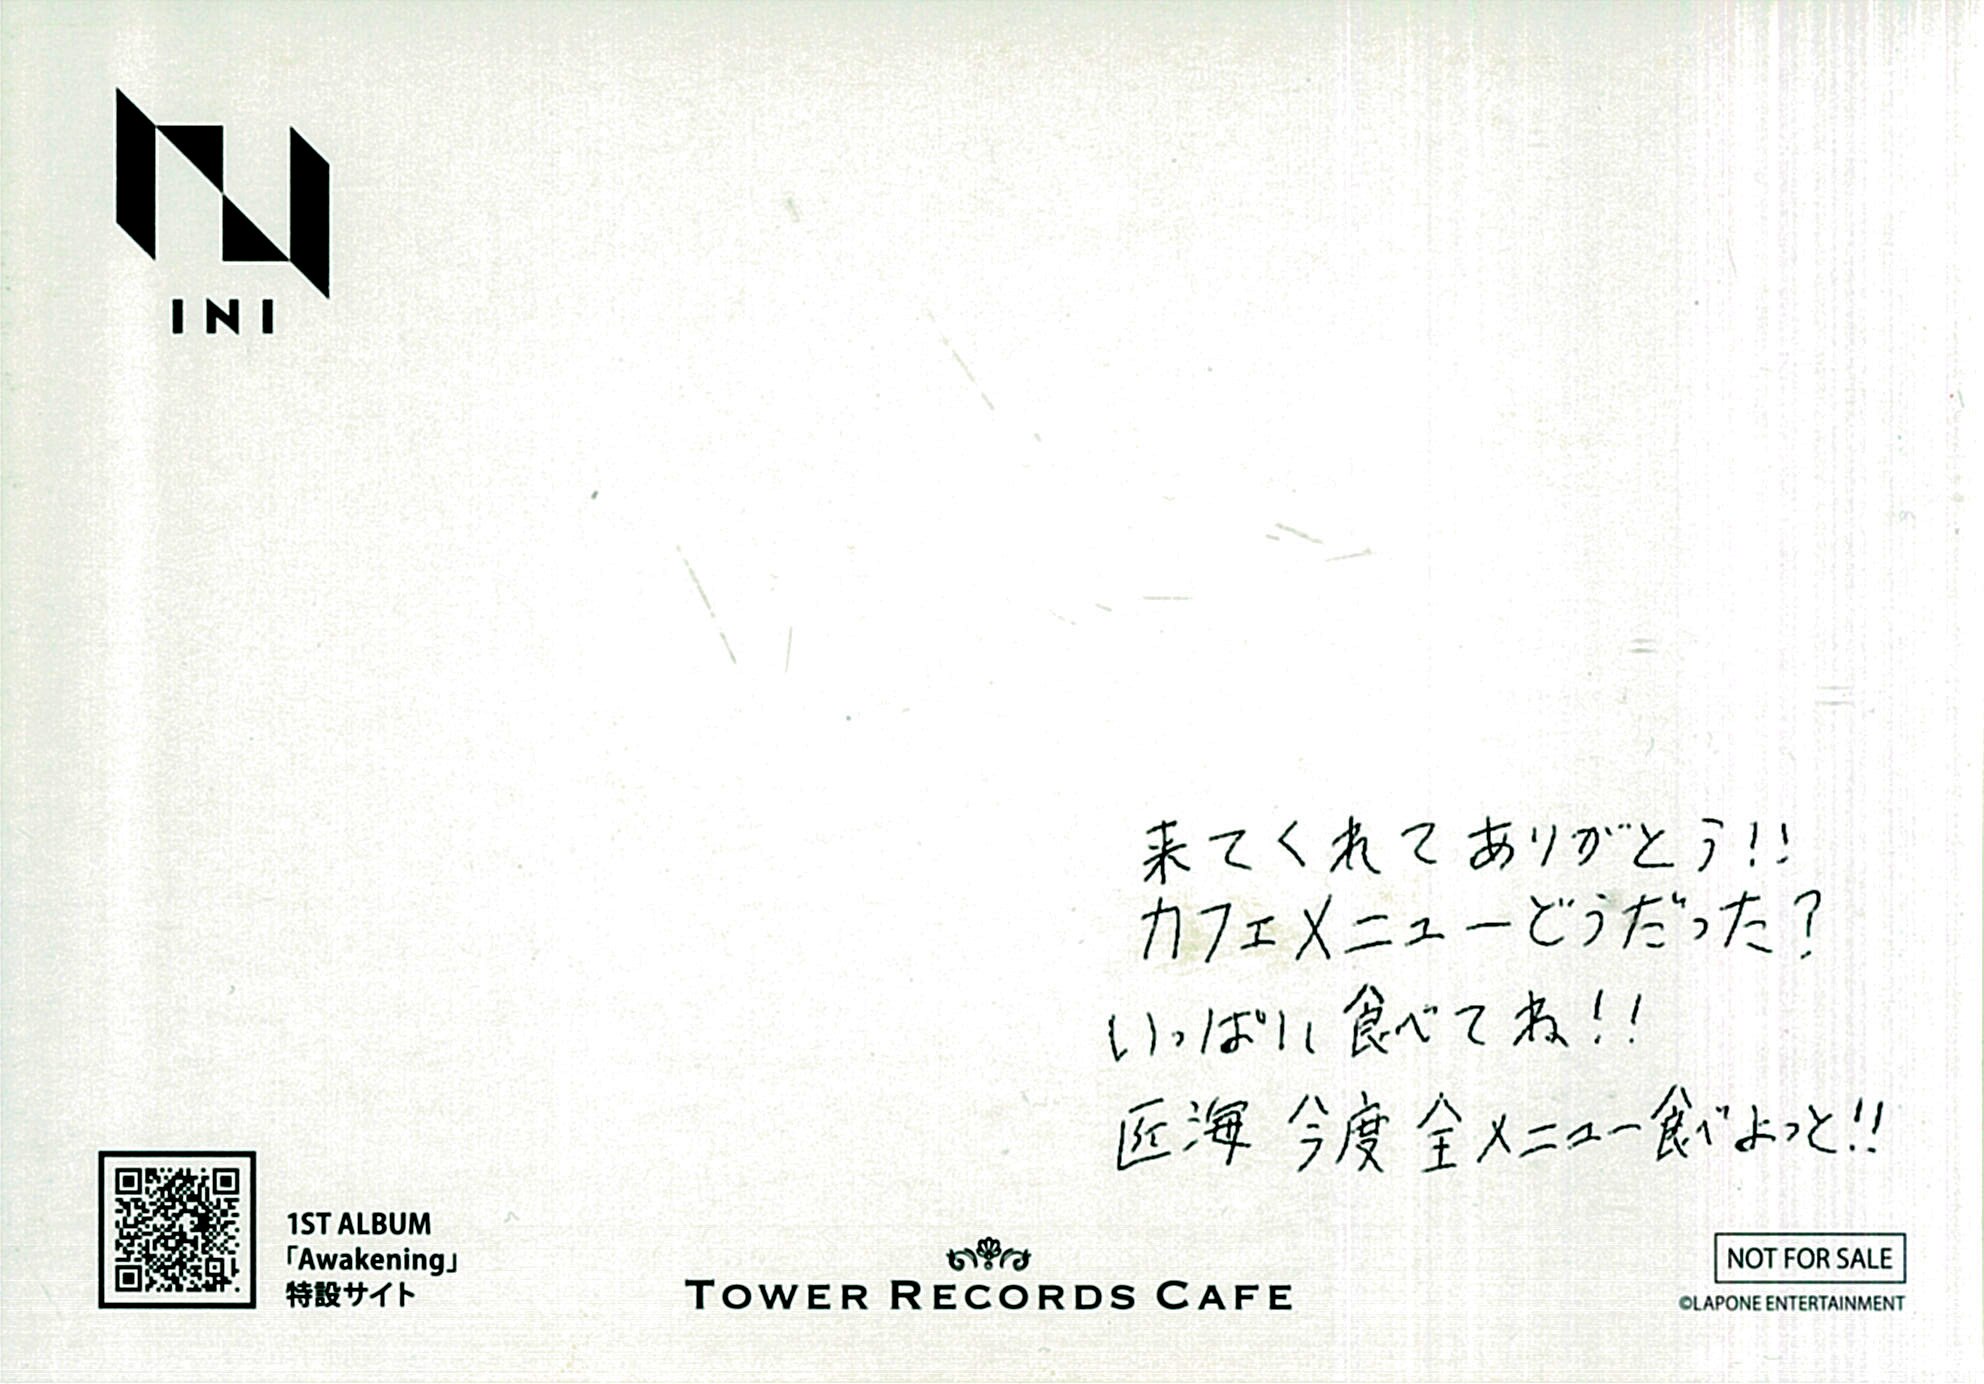 INI
来てくれてありがとう!!
カフェメニューどうだった?
いっぱい食べてね!!
匠海 今度 全メニュー食べよっと!!
1ST ALBUM
「Awakening」
特設サイト
TOWER RECORDS CAFE
NOT FOR SALE
©LAPONE ENTERTAINMENT